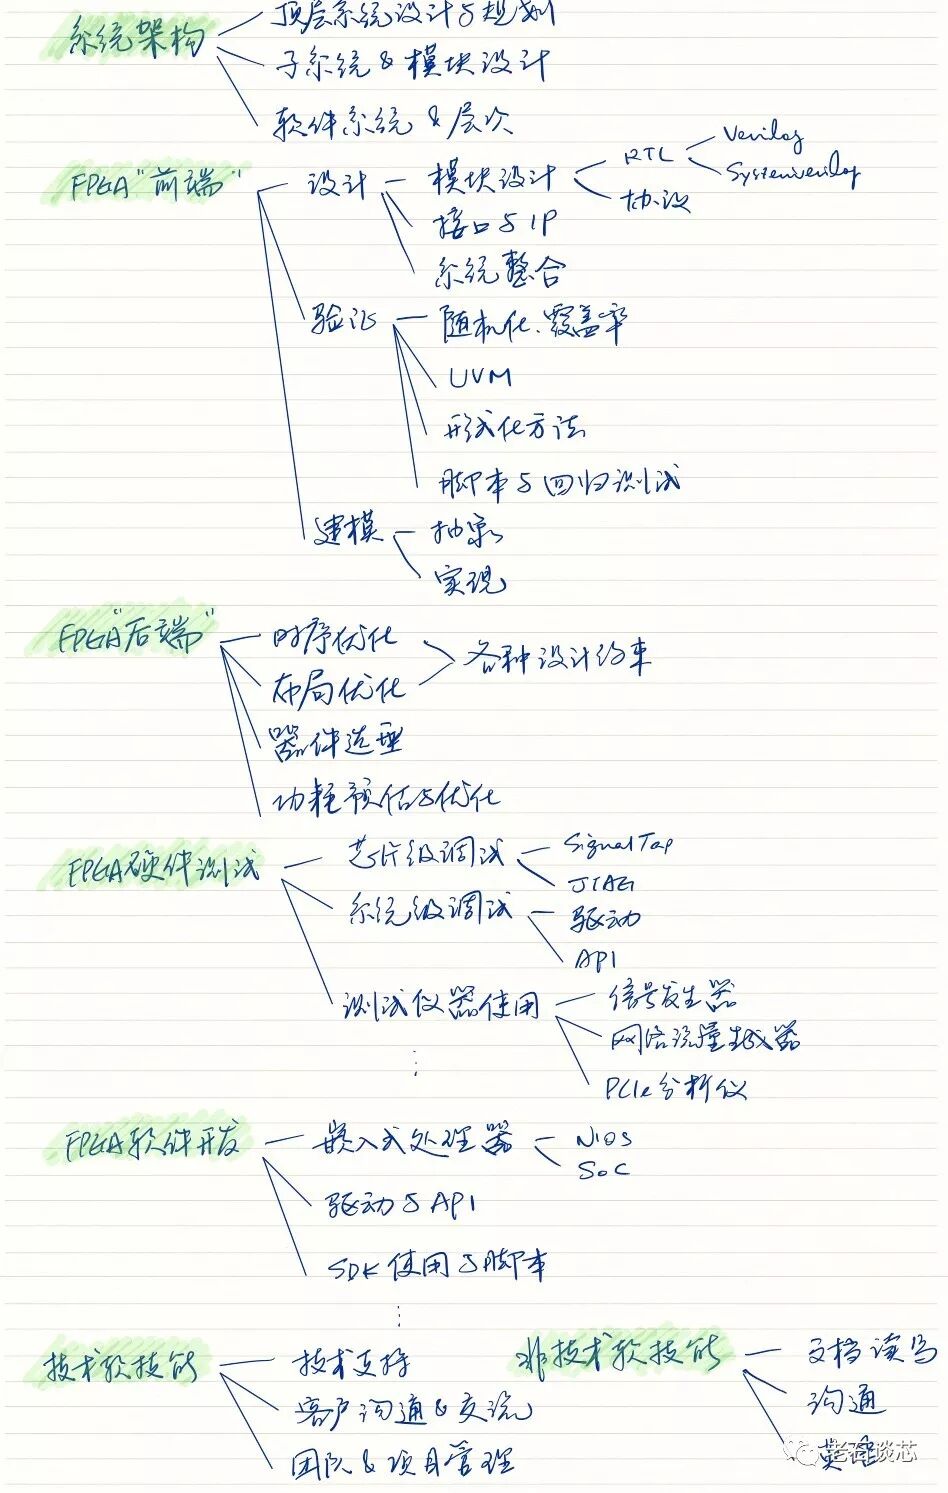 系统架构
顶层系统设计与规划
子系统 & 模块设计
软件系统 & 层次
FPGA"前端"
设计
模块设计
RTL
Verilog
Systemverilog
协议
接口与IP
系统整合
验证
随机化、覆盖率
UVM
形式化方法
脚本与回归测试
建模
抽象
实现
FPGA"后端"
时序优化
布局优化
各种设计约束
器件选型
功耗预估与优化
FPGA硬件测试
芯片级调试
SignalTap
JTAG
系统级调试
驱动
API
测试仪器使用
信号发生器
网络流量生成器
PCIe分析仪
⋮
FPGA软件开发
嵌入式处理器
NIOS
SoC
驱动与API
SDK使用与脚本
⋮
技术软技能
技术支持
客户沟通 & 交流
团队 & 项目管理
非技术软技能
文档读写
沟通
老石谈芯